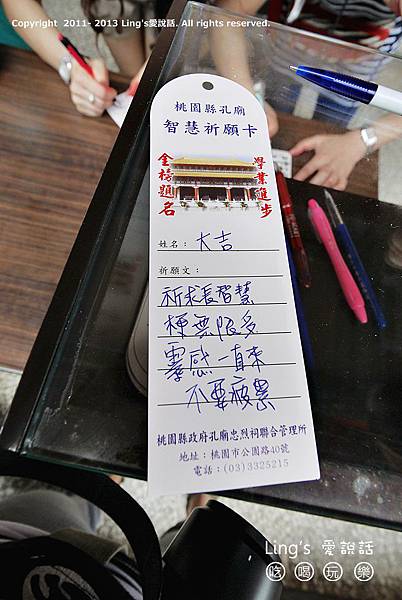 Copyright 2011- 2013 Ling's愛說話. All rights reserved.
桃園縣孔廟
智慧祈願卡
金榜題名
學業進步
姓名：大吉
祈願文：
祈求長智慧
梗無限多
靈感一直來
不要疲累
桃園縣政府孔廟忠烈祠聯合管理所
地址：桃園市公園路40號
電話：(03)3325215
Ling's 愛說話
吃喝玩樂